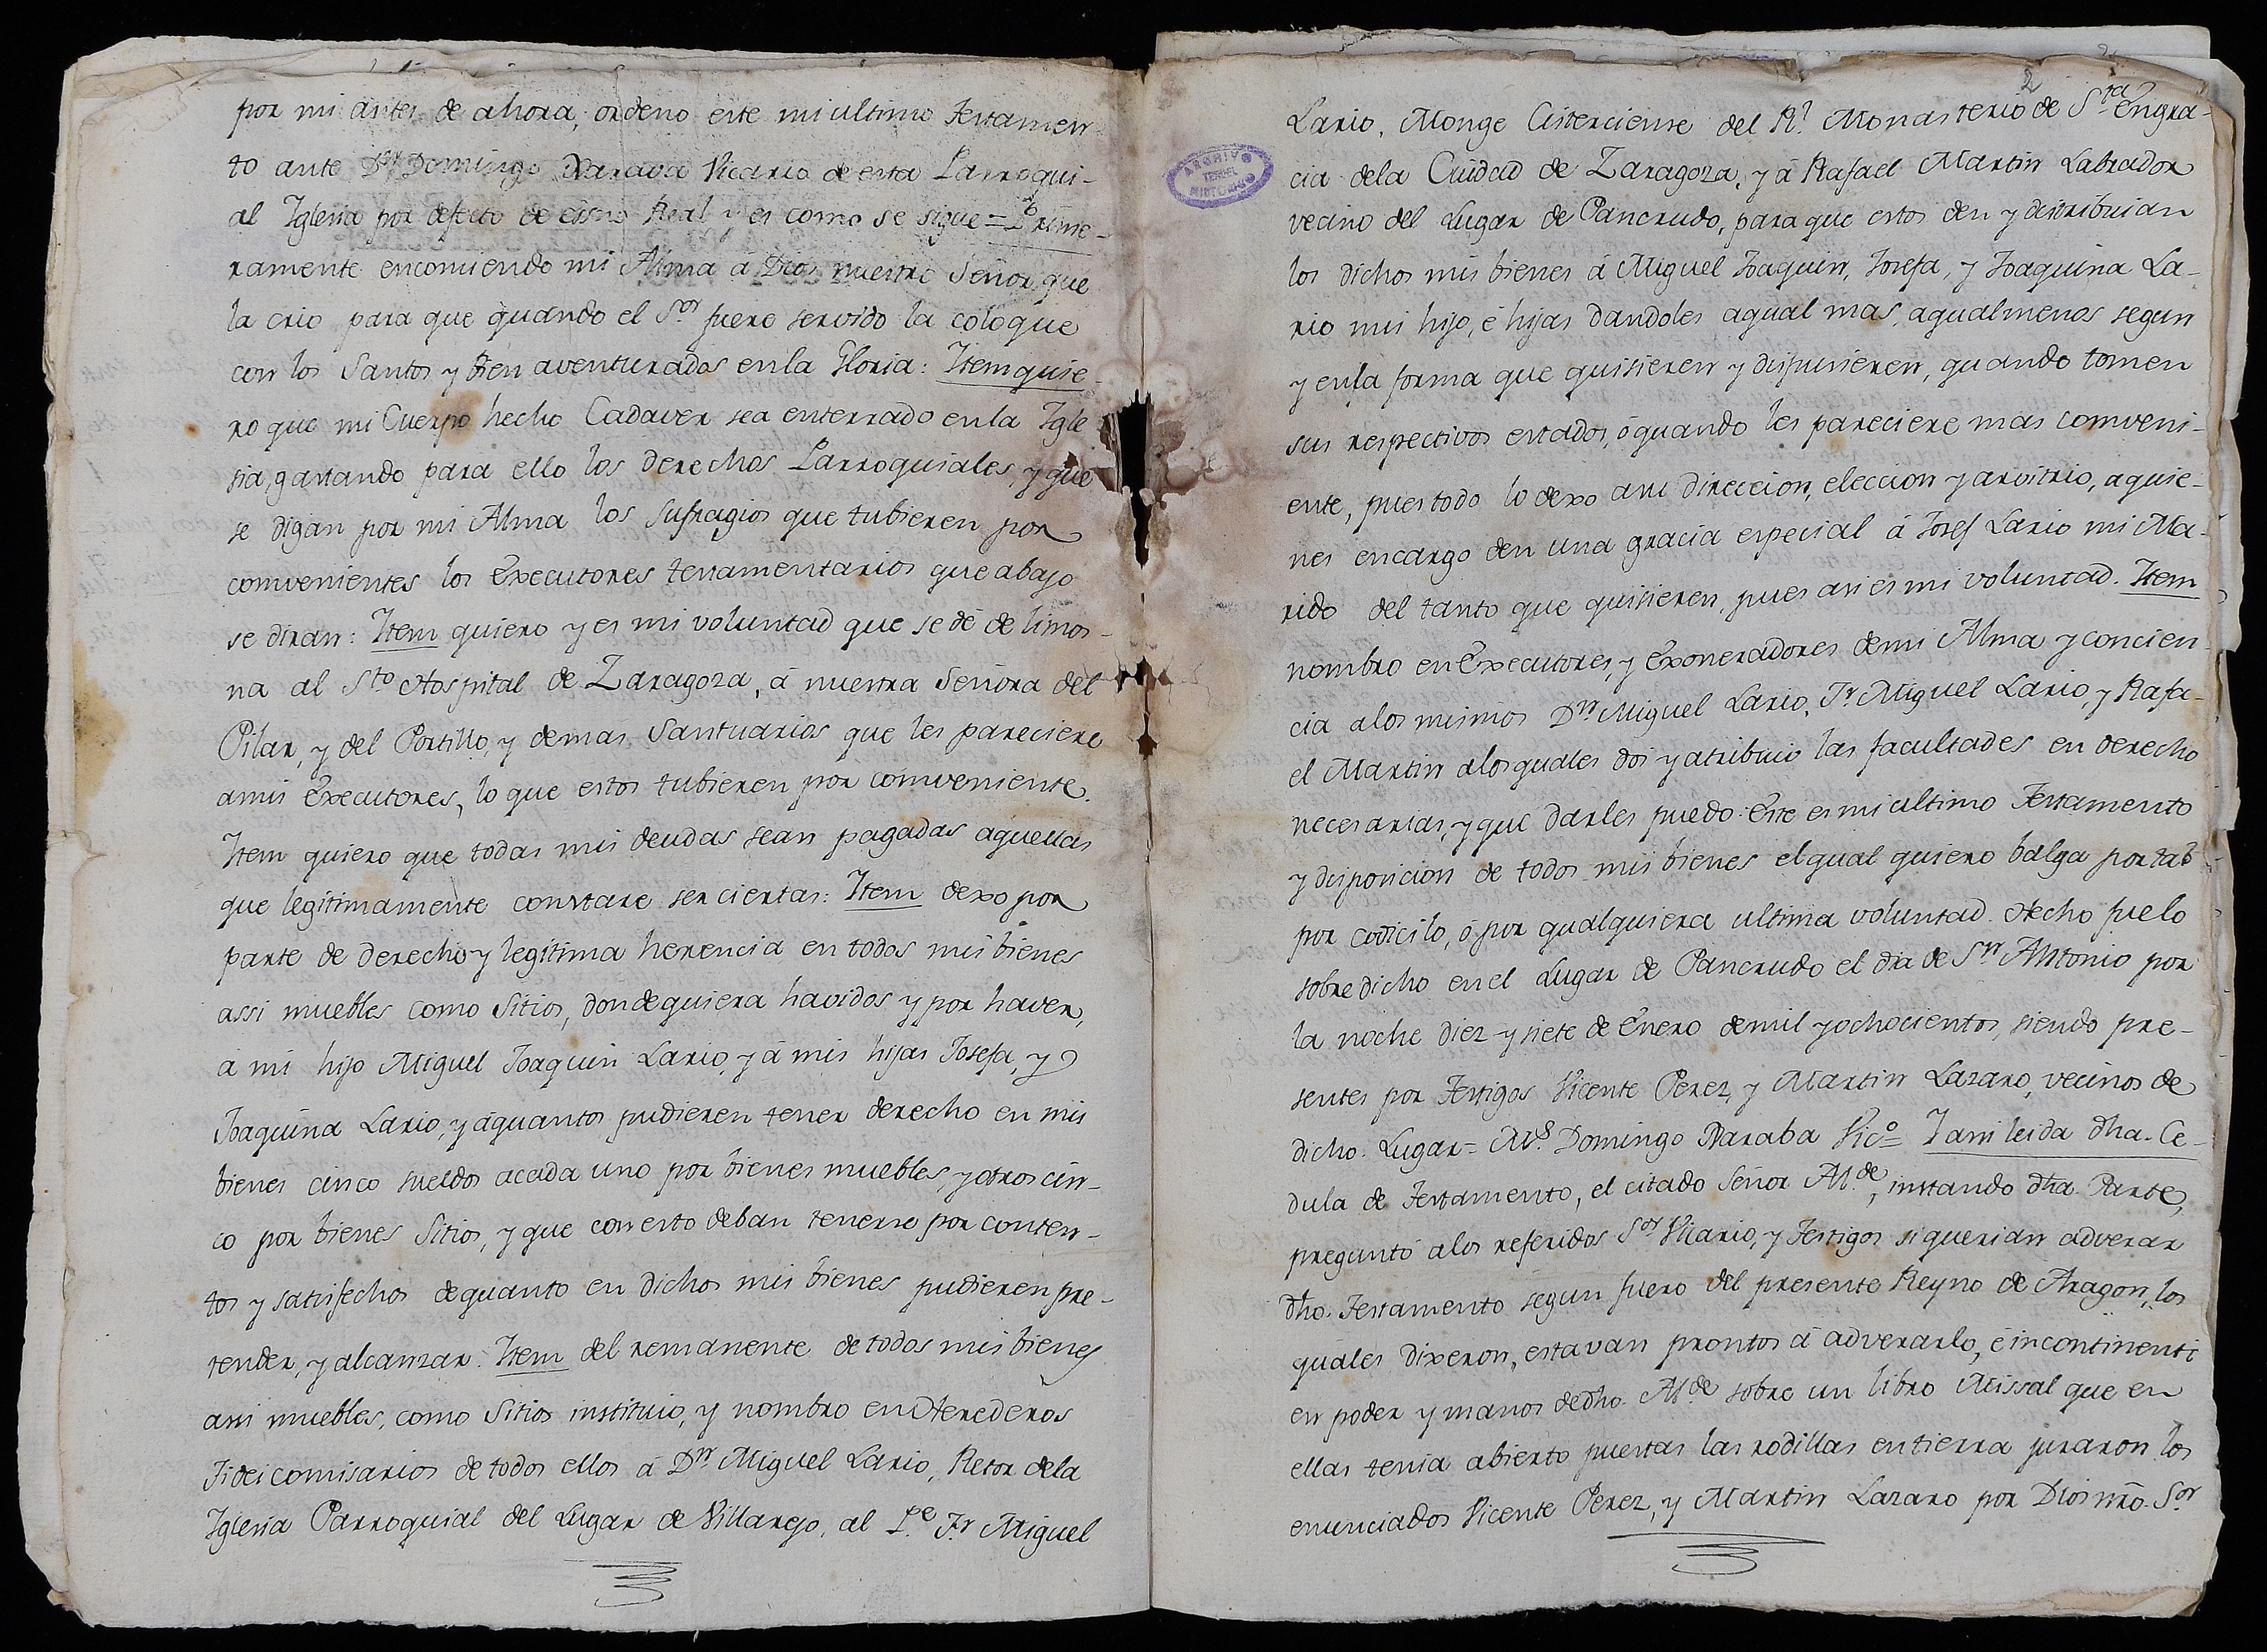 por mi antes de ahora; ordeno este mi ultimo Testamen-
to ante Dn Domingo Narava Vicario de esta Parroqui-
al Iglesia por defecto de essno Real y es como se sigue = Prime-
ramente encomiendo mi Alma á Dios nuestro Señor que
la crio para que quando el Sor fuere servido la coloque
con los Santos y Bien aventurados en la Gloria: Item quie-
ro que mi Cuerpo hecho Cadaver sea enterrado en la Igle
sia, gastando para ello los derechos Parroquiales, y que
se digan por mi Alma los sufragios que tubieren por
convenientes los Executores testamentarios que abajo
se diran: Item quiero y es mi voluntad que se dé de limos-
na al Sto Hospital de Zaragoza, á nuestra Señora del
Pilar, y del Portillo, y demas Santuarios que les pareciere
a mis Executores, lo que estos tubieren por conveniente.
Item quiero que todas mis deudas sean pagadas aquellas
que legitimamente constare ser ciertas: Item dexo por
parte de derecho y legitima herencia en todos mis bienes
assi muebles como Sitios, donde quiera havidos y por haver,
á mi hijo Miguel Joaquin Lario, y á mis hijas Josefa, y
Joaquina Lario, y á quantos pudieren tener derecho en mis
bienes cinco sueldos a cada uno por bienes muebles, y otros cin-
co por bienes Sitios, y que con esto deban tenerse por conten-
tos y satisfechos de quanto en dichos mis bienes pudieren pre-
tender, y alcanzar. Item del remanente de todos mis bienes
assi muebles, como Sitios instituio, y nombro en Herederos
Fideicomisarios de todos ellos á Dn Miguel Lario, Retor dela
Iglesia Parroquial del Lugar de Villarejo, al Pe Fr Miguel
2
Lario, Monge Cisterciense del Rl Monasterio de Sta Engra-
cia dela Ciudad de Zaragoza, y á Rafael Martin Labrador
vecino del Lugar de Pancrudo, para que estos den y distribuian
los dichos mis bienes á Miguel Joaquin, Josefa, y Joaquina La-
rio mis hijo, é hijas dandoles a qual mas, a qual menos segun
y en la forma que quisieren y dispusieren, quando tomen
sus respectivos estados, ó quando les pareciere mas conveni-
ente, pues todo lo dexo a su direccion, eleccion y arvitrio, a quie-
nes encargo den una gracia especial á Josef Lario mi Ma-
rido del tanto que quisieren, pues asi es mi voluntad. Item
nombro en Executores, y Exoneradores de mi Alma y concien-
cia a los mismos Dn Miguel Lario, Fr Miguel Lario, y Rafa-
el Martin a los quales doi y atribuio las facultades en derecho
necesarias, y que darles puedo. Este es mi ultimo Testamento
y disposicion de todos mis bienes el qual quiero balga por tal
por codicilo, ó por qualquiera ultima voluntad. Hecho fue lo
sobredicho en el Lugar de Pancrudo el dia de Sn Antonio por
la noche diez y siete de Enero de mil y ochocientos, siendo pre-
sentes por Testigos Vicente Perez, y Martin Lazaro, vecinos de
dicho Lugar = Mn Domingo Naraba Vico = I assi leida dha. Ce-
dula de Testamento, el citado Señor Alde, instando dha. Parte,
preguntó a los referidos Sor Vicario, y Testigos si querian adverar
dho. Testamento segun fuero del presente Reyno de Aragon, los
quales dixeron, estavan prontos á adverarlo, é incontinenti
en poder y manos de dho. Alde sobre un libro Missal que en
ellas tenia abierto puestas las rodillas en tierra juraron los
enunciados Vicente Perez, y Martin Lazaro por Dios nro. Sor